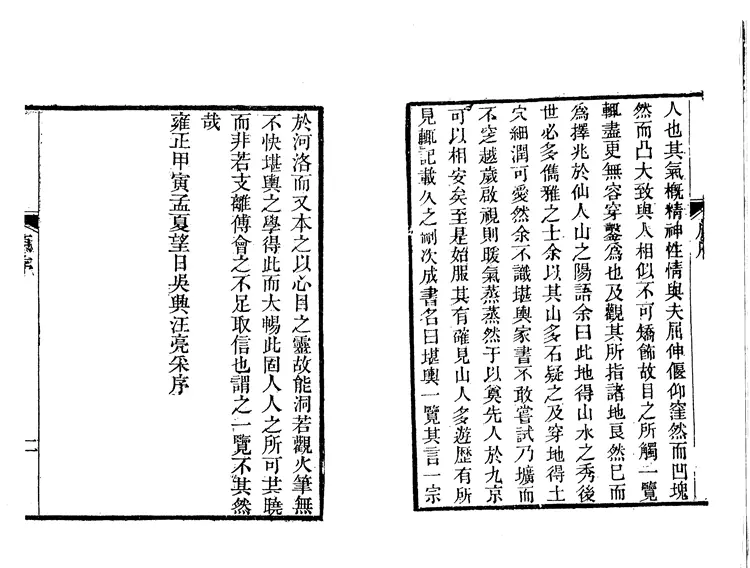 人也其氣概精神性情與夫屈伸偃仰窪然而凹塊
然而凸大致與人相似不可矯飾故目之所觸一覽
輒盡更無容穿鑿爲也及觀其所指諸地艮然已而
為擇兆於仙人山之陽語余曰此地得山水之秀後
世必多儁雅之士余以其山多石疑之及穿地得土
穴細潤可愛然余不識堪輿家書不敢嘗試乃壙而
不窆越歲啟視則暖氣蒸蒸然于以奠先人於九京
可以相安矣至是始服其有確見山人多遊歷有所
見輒記載久之刪次成書名曰堪輿一覽其言一宗
於河洛而又本之以心目之靈故能洞若觀火筆無
不快堪輿之學得此而大暢此固人人之所可共曉
而非若支離傅會之不足取信也謂之一覽不其然
哉
雍正甲寅孟夏望日吳興汪亮采序
二